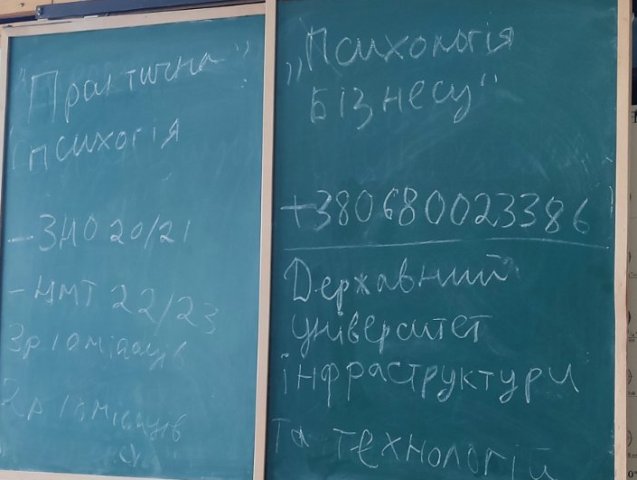 "Практична"
психогія
- ЗНО 20/21
- НМТ 22/23
3р 10 місяців
2р 10 місяців
„Психологія
бізнесу“
+380680023386
Державний
університет
інфраструктури
та технологій